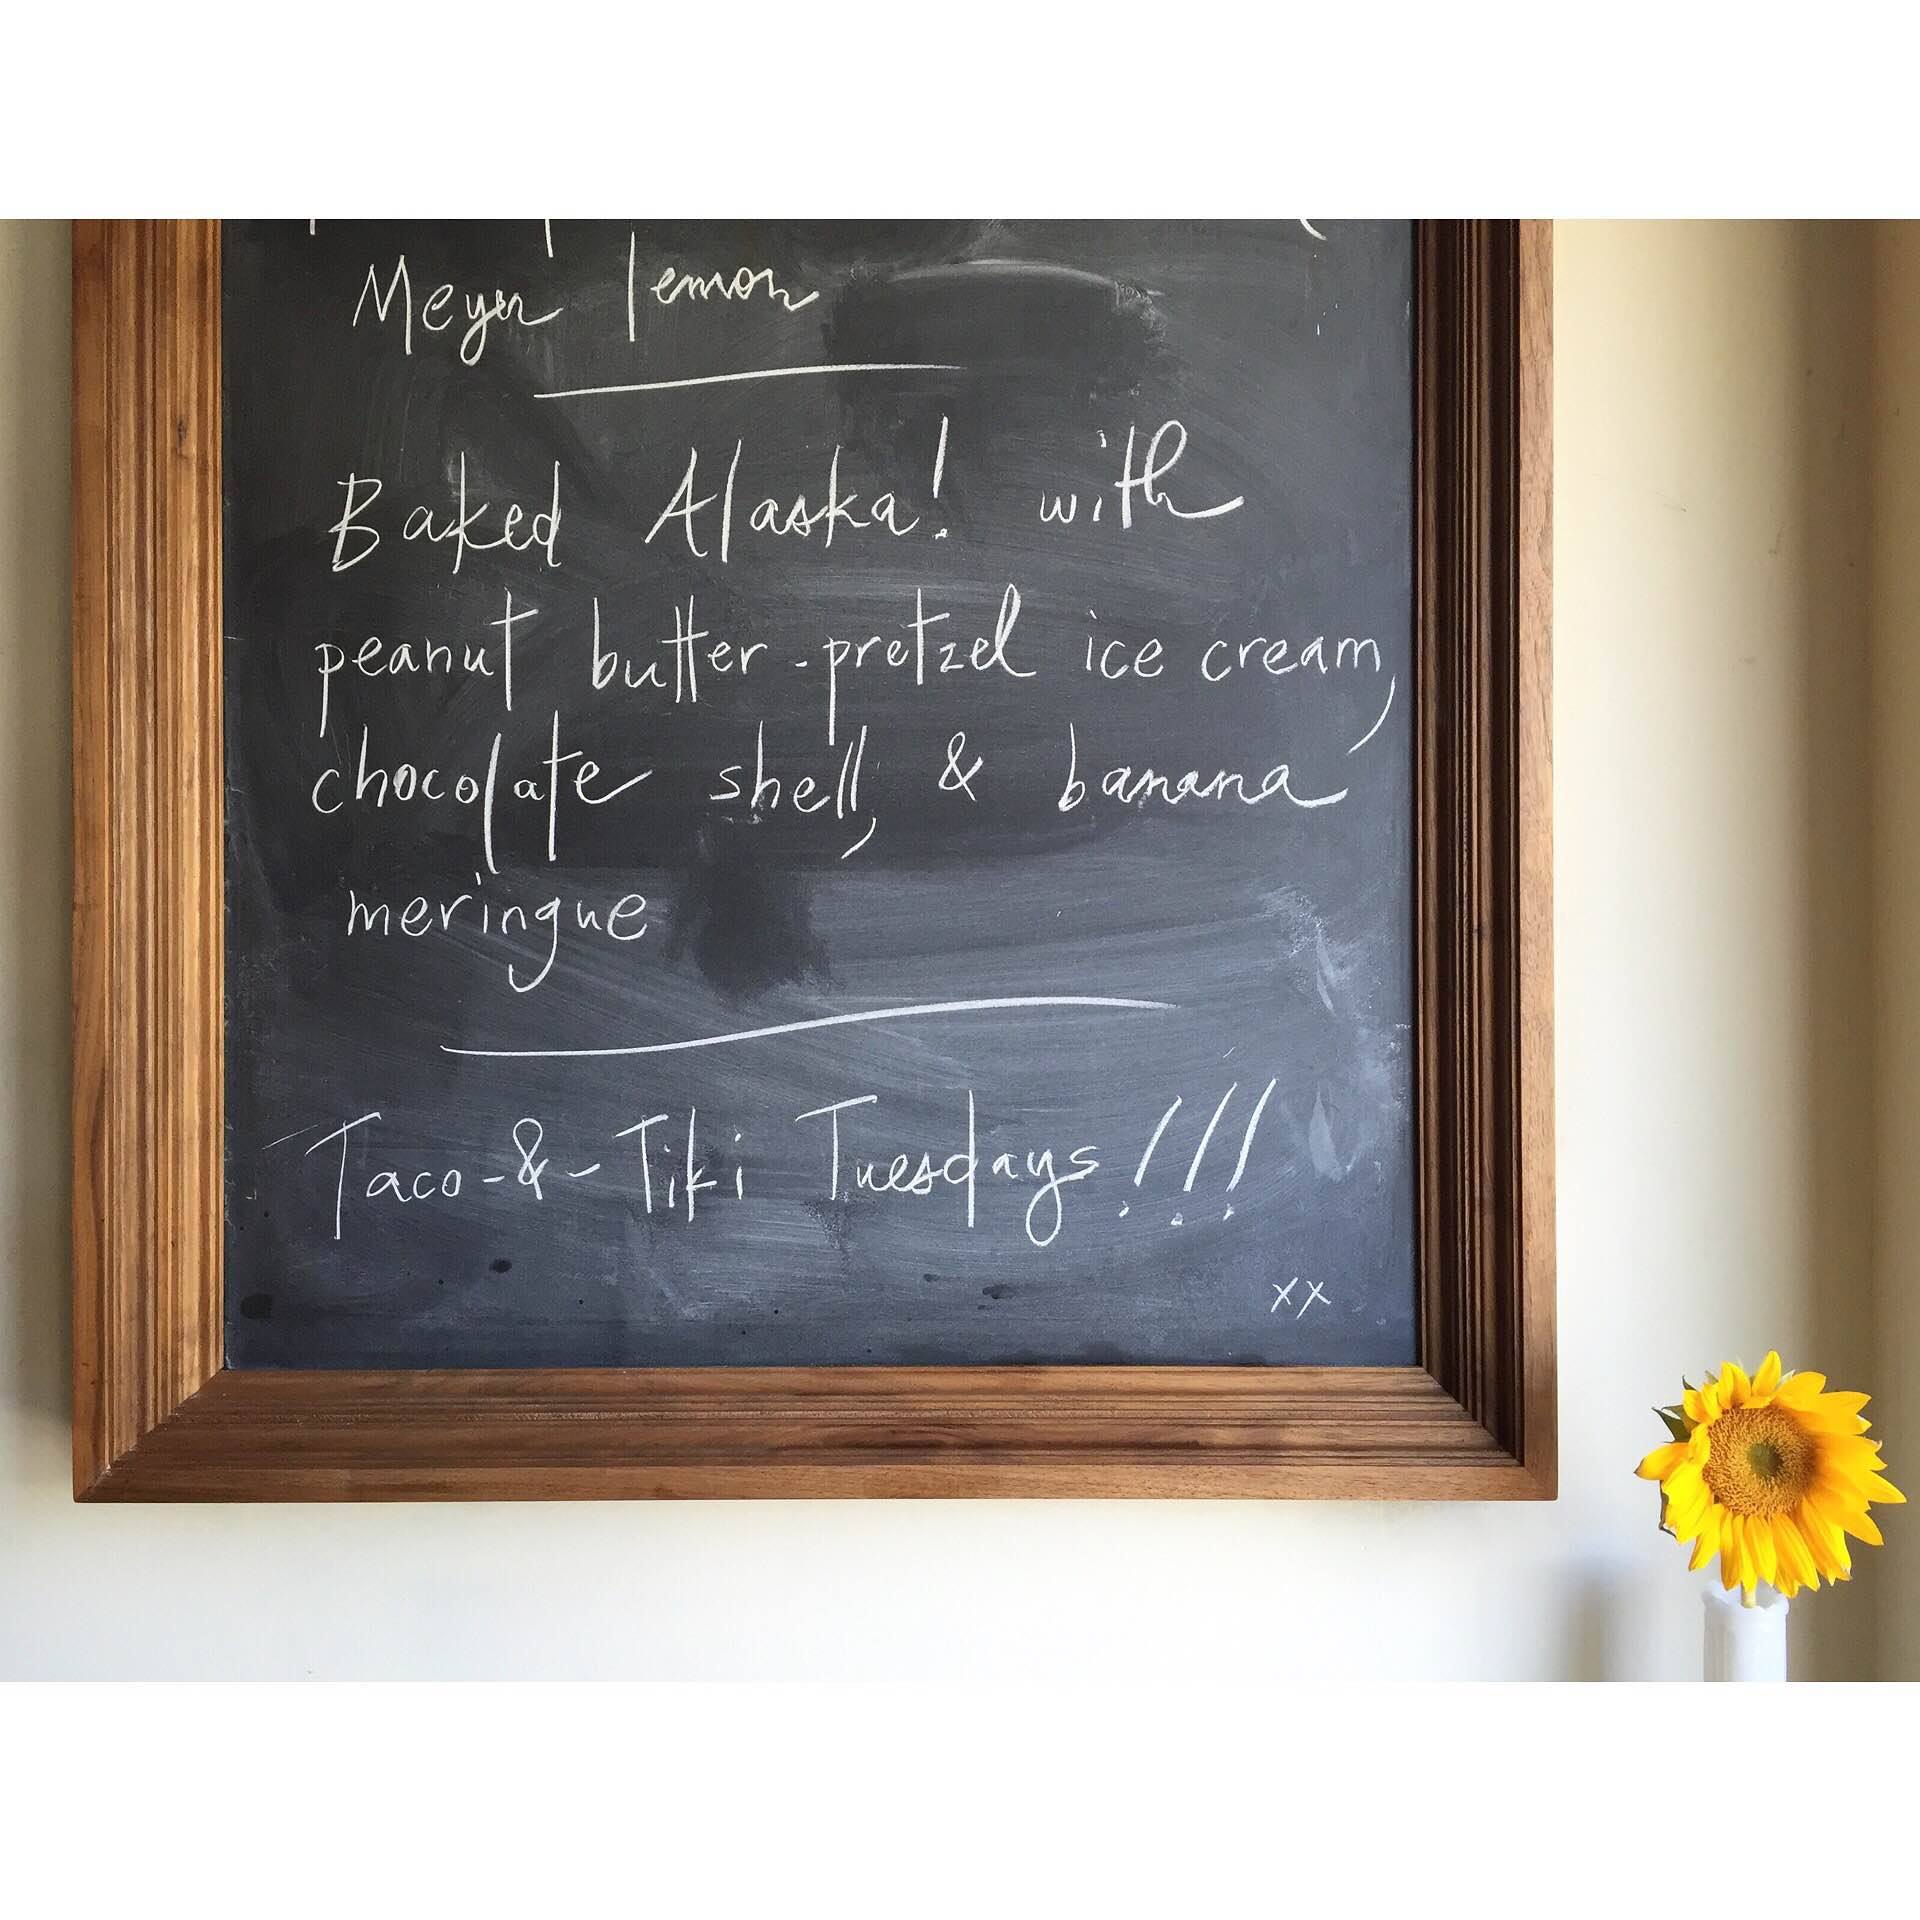 Meyer lemon
Baked Alaska! with
peanut butter-pretzel ice cream,
chocolate shell, & banana
meringue
Taco-&-Tiki Tuesdays!!!
xx